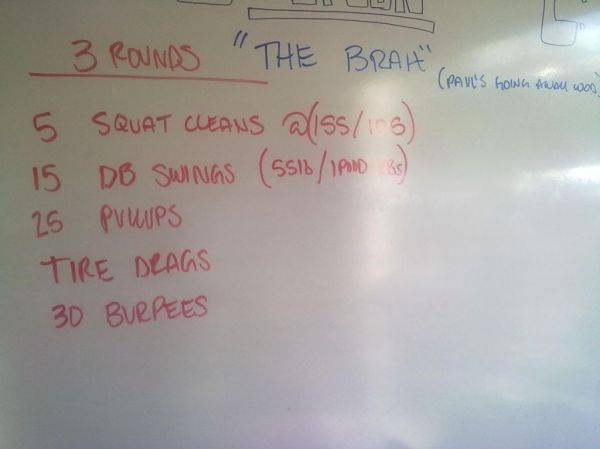 3 ROUNDS "THE BRAH"
(PAUL'S GOING AWAY WOD)
5 SQUAT CLEANS @(155/105)
15 DB SWINGS (55lb/1POOD KBS)
25 PULLUPS
TIRE DRAGS
30 BURPEES